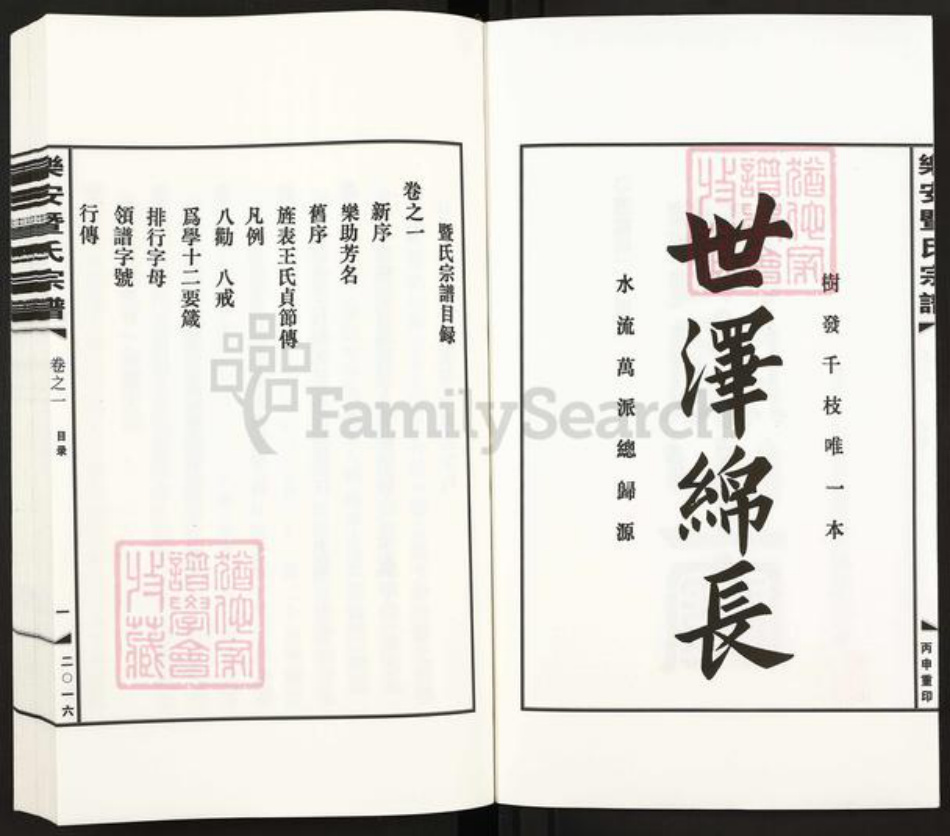 樂安暨氏宗譜
丙申重印
樹發千枝唯一本
世澤綿長
水流萬派總歸源
猶他家譜學會收藏
暨氏宗譜目録
卷之一
新序
樂助芳名
舊序
旌表王氏貞節傳
凡例
八勸 八戒
爲學十二要箴
排行字母
領譜字號
行傳
樂安暨氏宗譜
卷之一
目录
一
二〇一六
猶他家譜學會收藏
FamilySearch